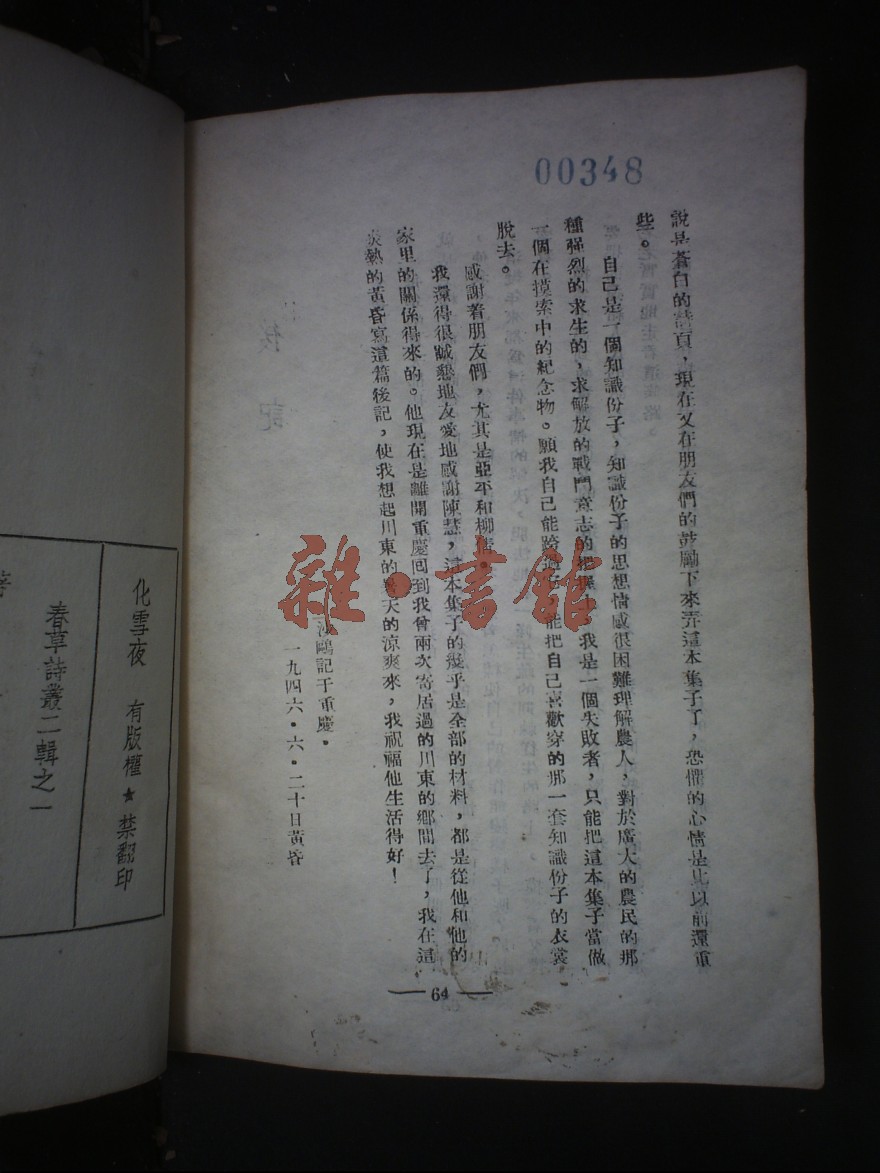 00348
說是蒼白的詩頁，現在又在朋友們的鼓勵下來弄這本集子了，恐懼的心情是比以前還重
些。
自己是一個知識份子，知識份子的思想情感很困難理解農人，對於廣大的農民的那
種强烈的求生的，求解放的戰鬥意志的把握，我是一個失敗者，只能把這本集子當做
一個在摸索中的紀念物。願我自己能跨過 能把自己喜歡穿的那一套知識份子的衣裳
脫去。
感謝着朋友們，尤其是亞平和柳倩。
我還得很誠懇地友愛地感謝陳慧，這本集子的幾乎是全部的材料，都是從他和他的
家里的關係得來的。他現在是離開重慶回到我曾兩次寄居過的川東的鄉間去了，我在這
炎熱的黃昏寫這篇後記，使我想起川東的 天的涼爽來，我祝福他生活得好！
沙鷗記于重慶。
一九四六·六·二十日黃昏
— 64 —
化雪夜 有版權★禁翻印
春草詩叢二輯之一
著
雜·書館